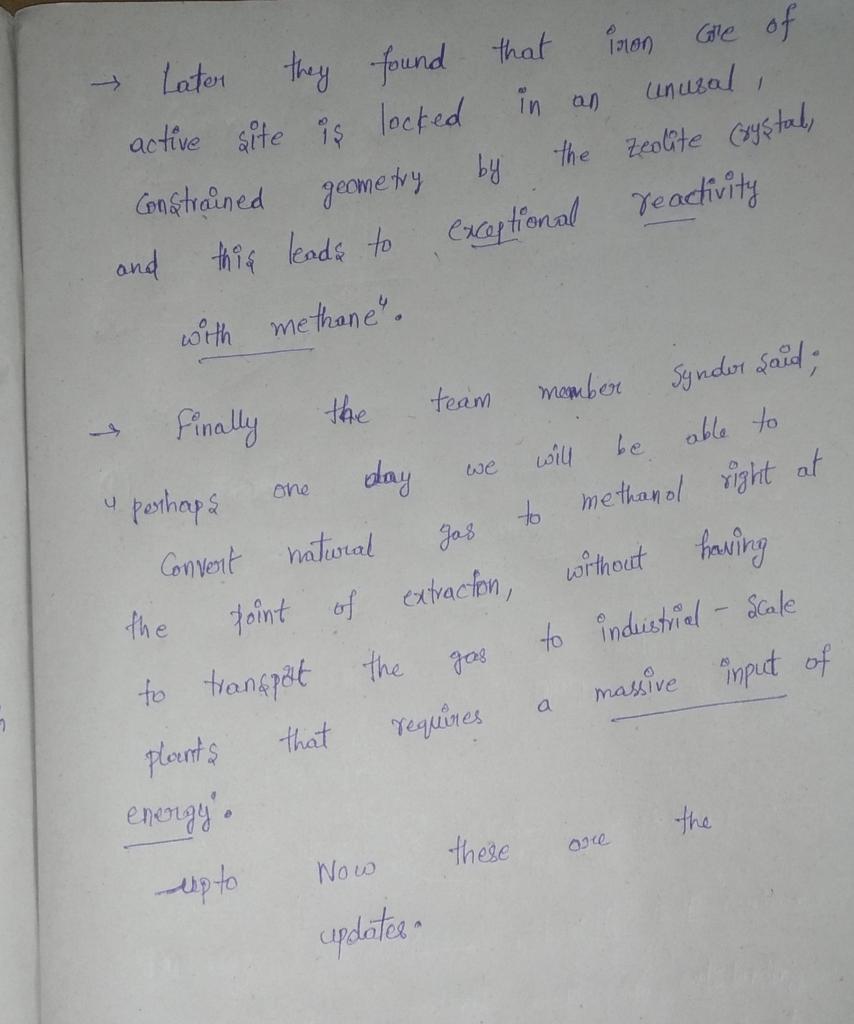 → Later they found that iron core of
active site is locked in an unusal,
Constrained geometry by the zeolite Crystal,
and this leads to exceptional reactivity
with methane".
→ Finally the team member Syndor said;
"perhaps one day we will be able to
Convert natural gas to methanol right at
the point of extracton, without having
to transpot the gas to industrial - Scale
plants that requires a massive input of
energy".
upto Now these are the
updates.